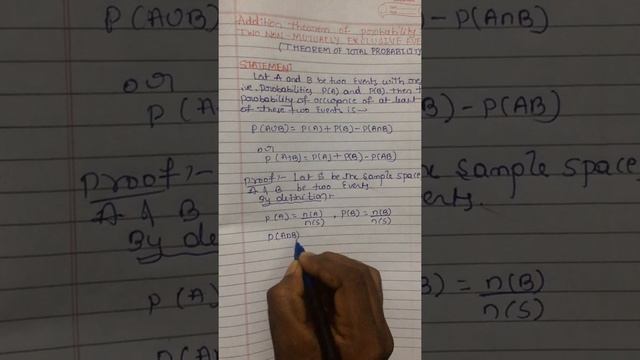 Addition theorem of probability
TWO NON-MUTUALLY EXCLUSIVE EVE
(THEOREM OF TOTAL PROBABILITY
STATEMENT:
Let A and B be two Events with
i.e. Probabilities P(A) and P(B). then
probability of occurance of at least
of these two Events is
P(AUB) = P(A) + P(B) - P(A∩B)
or
P(A+B) = P(A) + P(B) - P(AB)
Proof:- Let S be the sample space
A & B be two Events.
By definition:
P(A) = n(A)/n(S) , P(B) = n(B)/n(S)
P(A∩B)
P(AUB)
- P(A∩B)
or
P(A
) - P(AB)
Proof:-
sample space
A & B
ents.
By de
P(A)
B) = n(B)/n(S)